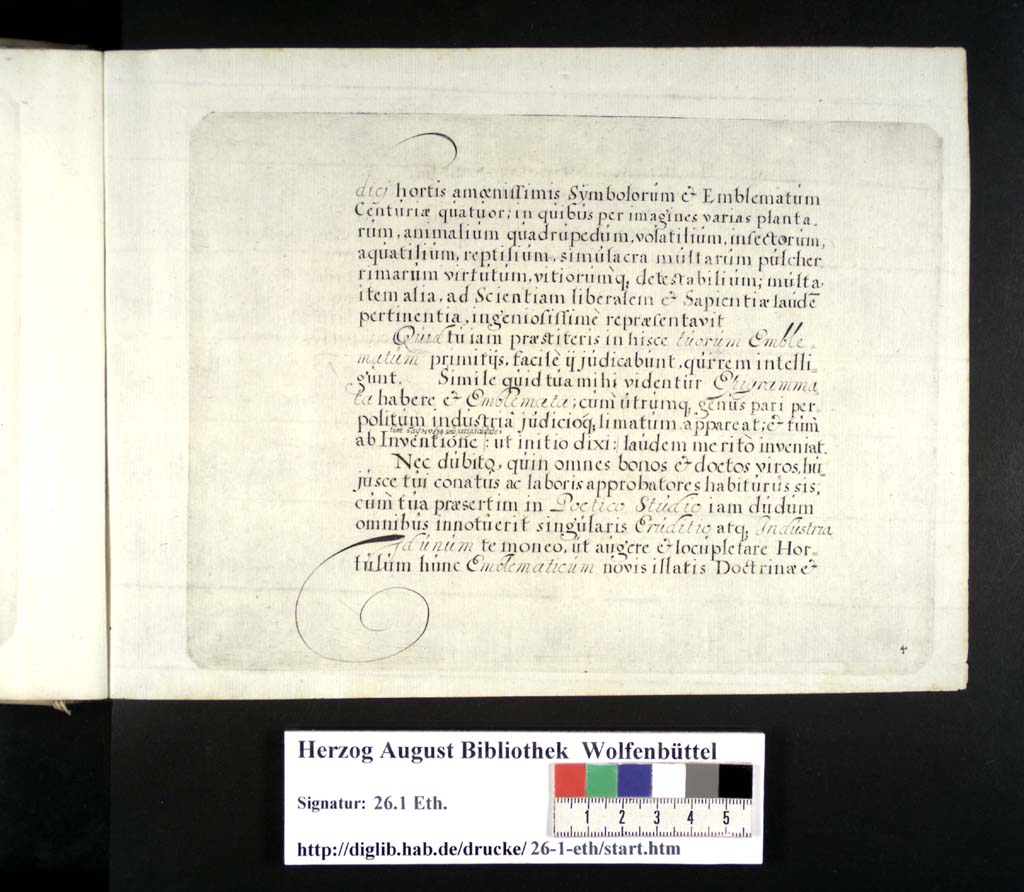 dici hortis amœnissimis Symbolorúm & Emblematúm
Centúriæ quatuor; in quibús per imagines varias planta-
rúm, animaliúm quadrúpedúm, volatiliúm, insectorúm,
aquatiliúm, reptiliúm, simúlacra múltarúm púlcher-
rimarúm virtútúm, vitiorúmq, detestabiliúm; múlta
item alia, ad Scientiam liberalem & Sapientiæ laúdē
pertinentia, ingeniosissimè repræsentavit
Quid tú iam præstiteris in hisce túorúm Emble-
matúm primitijs, facilè ij júdicabúnt, qui rem intelli-
gúnt. Simile quid túa mihi videntúr Epigramma
ta habere & Emblemata; cúm útrúmq, genús pari per
politúm indústriâ júdicioq, limatúm appareat; & túm
ab Inventione |: út initio dixi :| laúdem meritò inveniat.
Nec dúbito, quin omnes bonos & doctos viros, hú-
júsce túi conatús ac laboris approbatores habitúrús sis;
cúm túa præsertim in Poetico Stúdio iam dúdúm
omnibús innotúerit singúlaris Erúditio atq, Indústria
Id únúm te moneo, út aúgere & locúpletare Hor-
túlúm húnc Emblematicúm novis illatis Doctrinæ &
4
Herzog August Bibliothek Wolfenbüttel
Signatur: 26.1 Eth.
1 2 3 4 5
http://diglib.hab.de/drucke/ 26-1-eth/start.htm